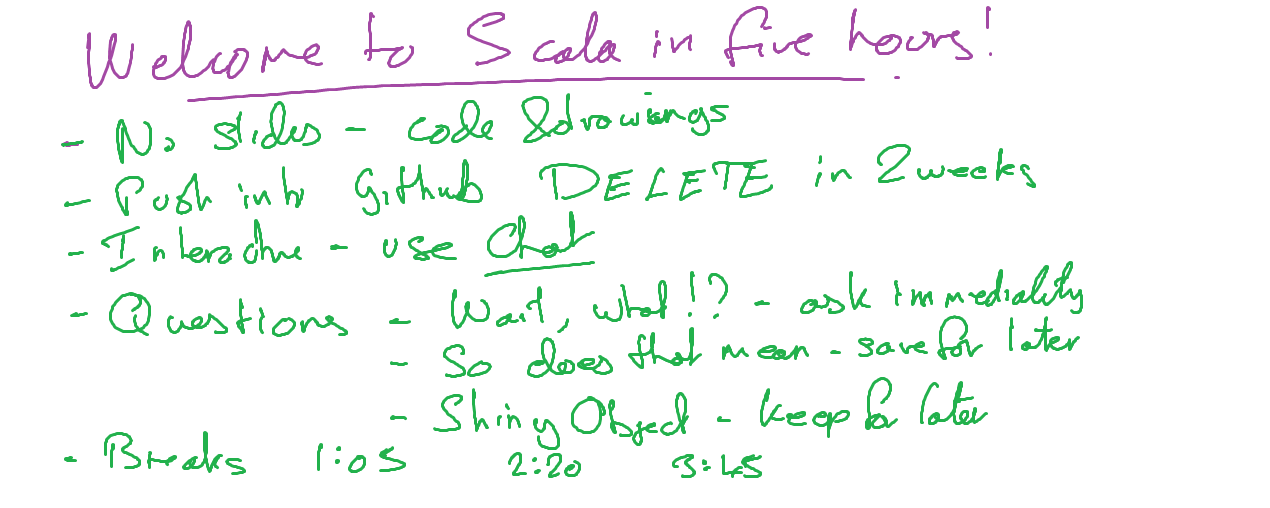 Welcome to Scala in five hours!
- No slides - code & drawings
- Push into Github DELETE in 2 weeks
- Interactive - use Chat
- Questions - Wait, what!? - ask immediality
- So does that mean - save for later
- Shiny Object - keep for later
- Breaks 1:05 2:20 3:45